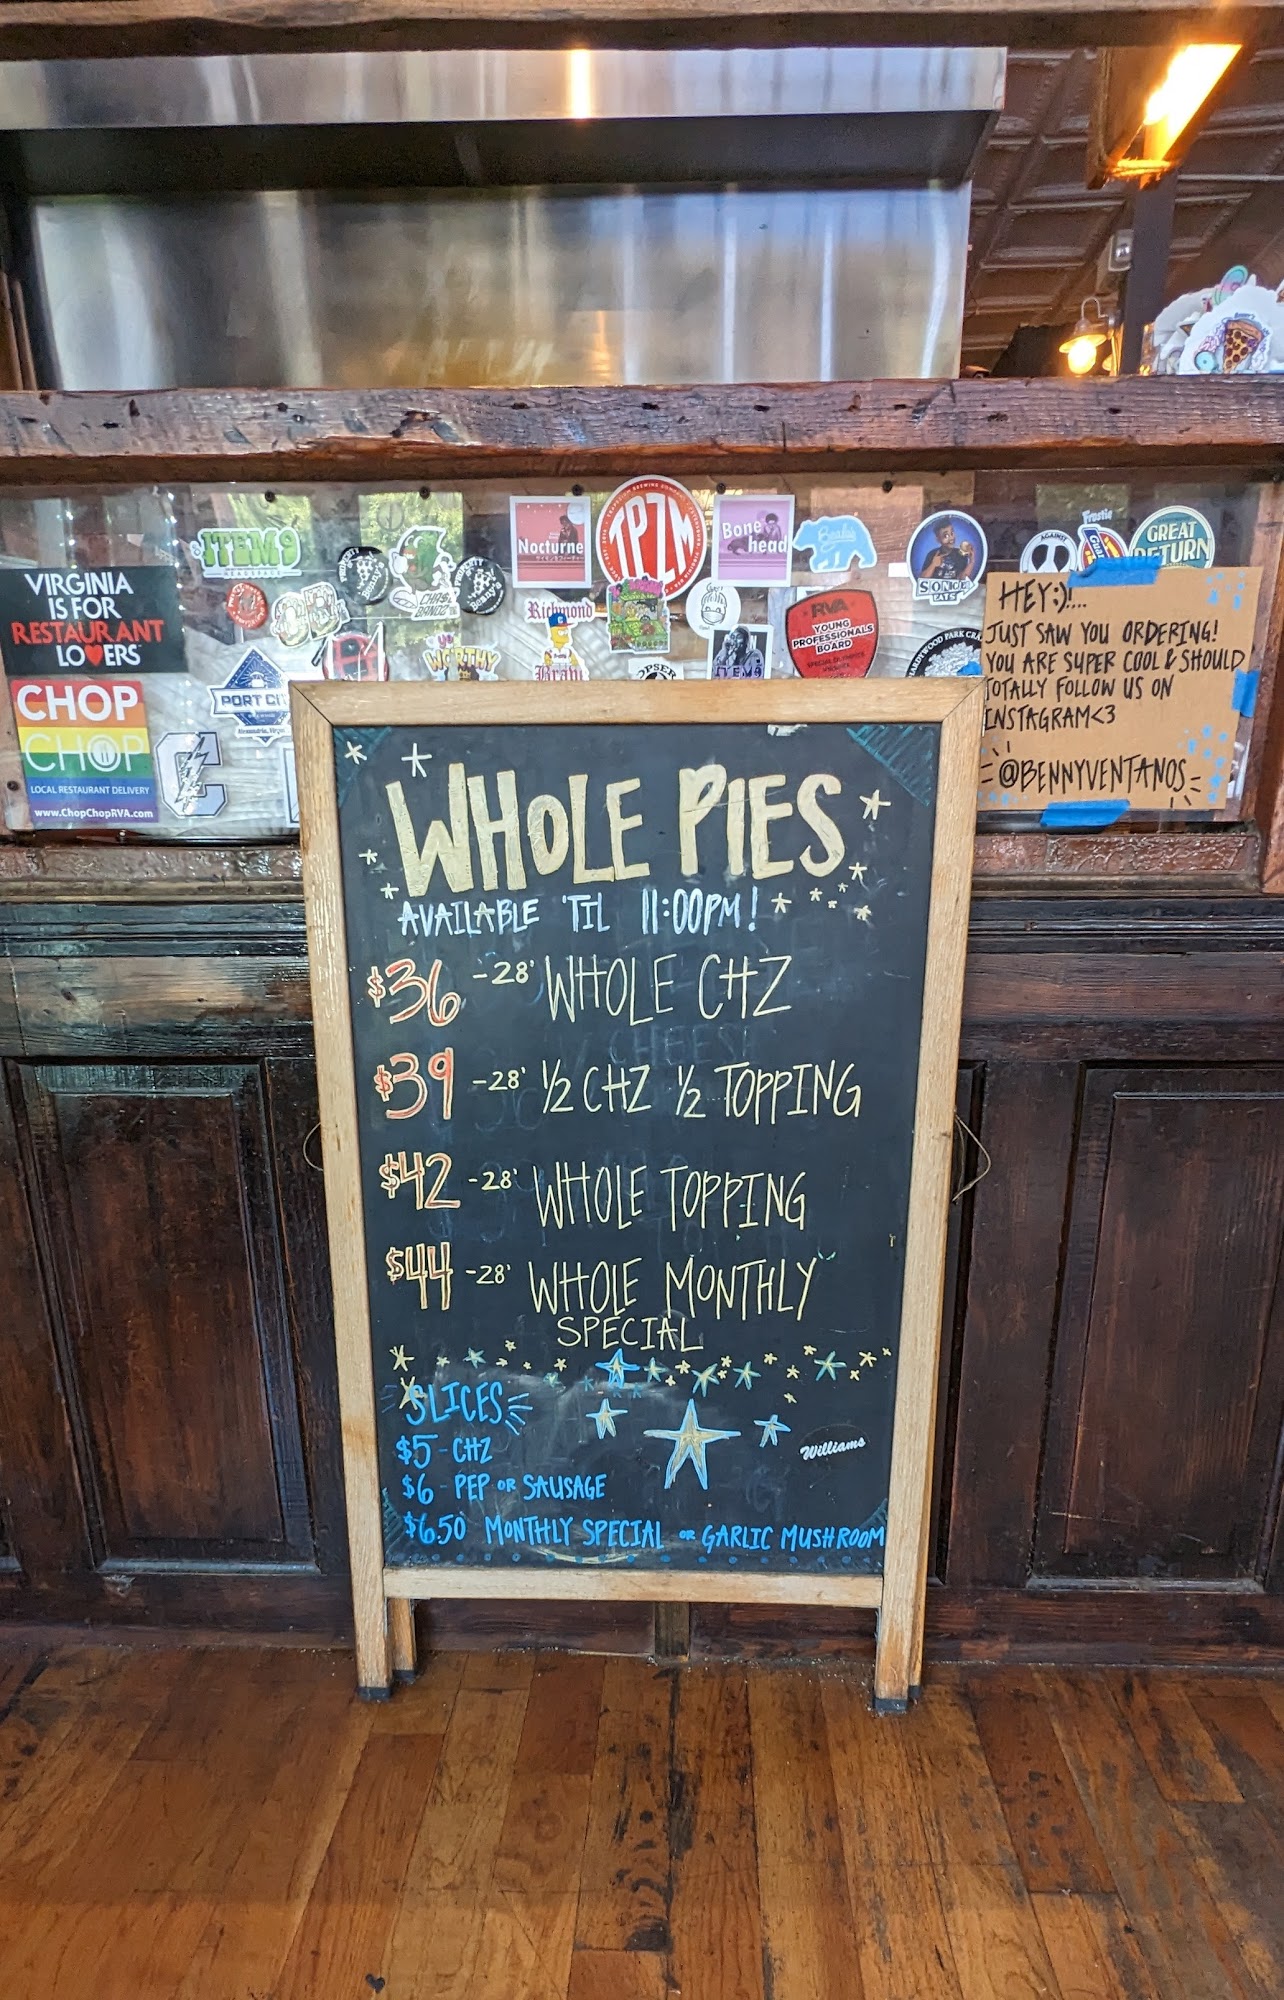 ITEM9
HEADSPACE
Nocturne
TPZM
Bone
head
S'ONCE
EATS
AGAINST
Frostie
GREAT
RETURN
VIRGINIA
IS FOR
RESTAURANT
LOVERS
PROPERTY OF
Benny's
PROPERTY OF
Benny's
Richmond
RVA
YOUNG
PROFESSIONALS
BOARD
WORTHY
ITEM9
HARDYWOOD PARK CRA
CHOP
CHOP
LOCAL RESTAURANT DELIVERY
www.ChopChopRVA.com
PORT CIT
C
HEY:)!...
JUST SAW YOU ORDERING!
YOU ARE SUPER COOL & SHOULD
TOTALLY FOLLOW US ON
INSTAGRAM<3
@BENNYVENTANOS
WHOLE PIES
AVAILABLE 'TIL 11:00PM!
$36 -28' WHOLE CHZ
$39 -28' 1/2 CHZ 1/2 TOPPING
$42 -28' WHOLE TOPPING
$44 -28' WHOLE MONTHLY
SPECIAL
SLICES
$5 - CHZ
$6 - PEP OR SAUSAGE
$6.50 MONTHLY SPECIAL OR GARLIC MUSHROOM
Williams